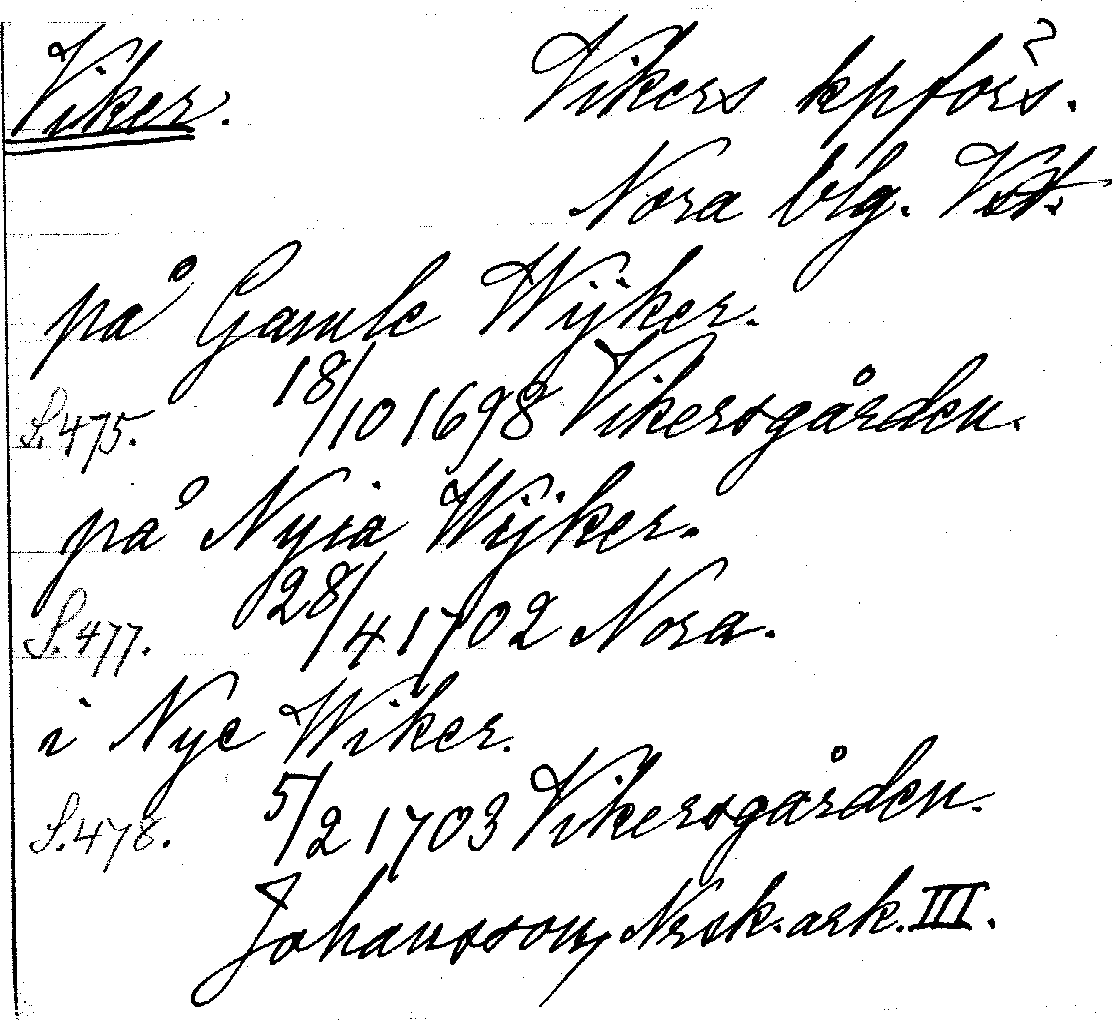 Viker. Vikers kpförs. ?
Nora blg. Vstl.
på Gamle Wijker.
S. 475. 18/10 1698 Vikersgården.
på Nyia Wijker.
S. 477. 28/4 1702 Nora.
i Nye Wiker.
S. 478. 5/2 1703 Vikersgården.
Johansson, Norsk. ark. III.